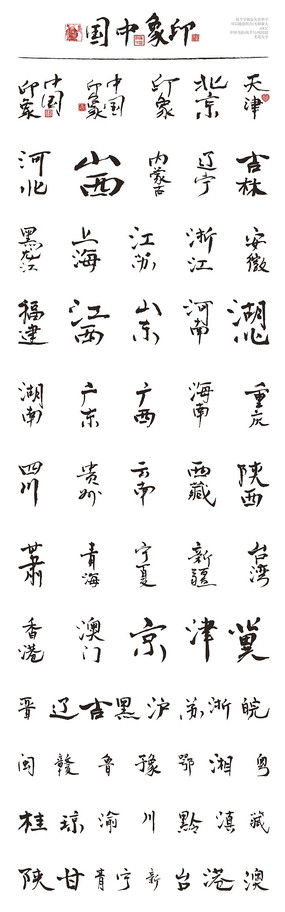 印象中国
中国印象 中国印象 印象 北京 天津
河北 山西 内蒙古 辽宁 吉林
黑龙江 上海 江苏 浙江 安徽
福建 江西 山东 河南 湖北
湖南 广东 广西 海南 重庆
四川 贵州 云南 西藏 陕西
甘肃 青海 宁夏 新疆 台湾
香港 澳门 京 津 冀
晋 辽 吉 黑 沪 苏 浙 皖
闽 赣 鲁 豫 鄂 湘 粤
桂 琼 渝 川 黔 滇 藏
陕 甘 青 宁 新 台 港 澳